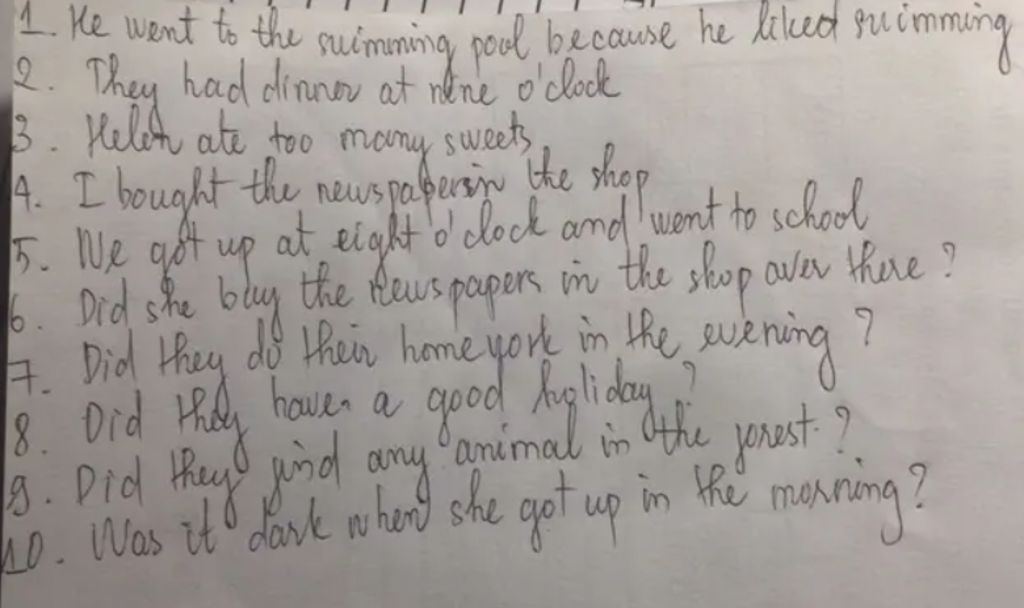 1. He went to the suimming pool because he liked suimming
2. They had dinner at nine o'clock
3. Helen ate too many sweets
4. I bought the newspapers in the shop
5. We got up at eight o'clock and went to school
6. Did she buy the newspapers in the shop over there?
7. Did they do their homeyork in the evening?
8. Did they have a good holiday?
9. Did they find any animal in the forest.?
10. Was it dark when she got up in the morning?